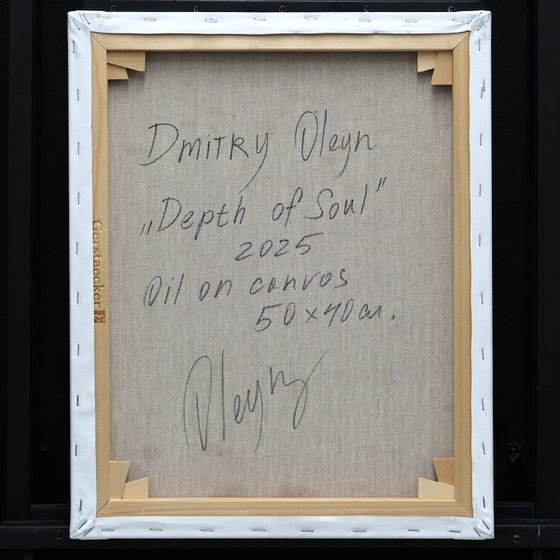 Dmitry Oleyn
„Depth of Soul"
2025
Oil on canvas
50 x 40 cm.
Oleyn
Gerstaecker